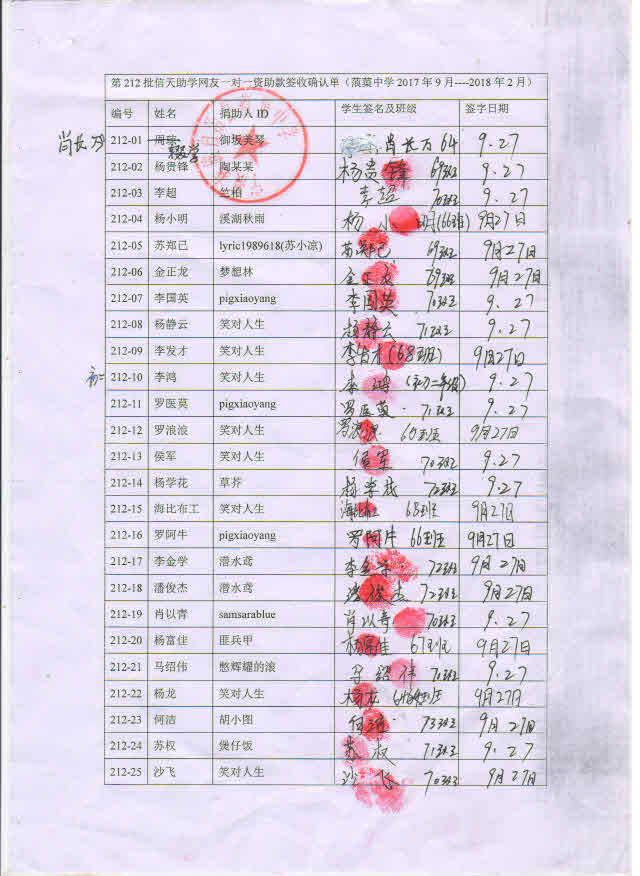 第212批信天助学网友一对一资助款签收确认单（菠萁中学2017年9月----2018年2月）
编号 姓名 捐助人ID 学生签名及班级 签字日期
肖长万 212-01 周琼 御坂美琴 肖长万 64 9.27
辍学
212-02 杨贵锋 陶某某 杨贵锋 69班 9.27
212-03 李超 竺柏 李超 70班 9.27
212-04 杨小明 溪湖秋雨 杨小明(66班) 9月27日
212-05 苏郑己 lyric1989618(苏小凉) 苏郑己 69班 9月27日
212-06 金正龙 梦想林 金正龙 69班 9月27日
212-07 李国英 pigxiaoyang 李国英 70班 9.27
212-08 杨静云 笑对人生 杨静云 71班 9.27
212-09 李发才 笑对人生 李发才(68班) 9月27日
初二 212-10 李鸿 笑对人生 李鸿 (初二年级) 9.27
212-11 罗医莫 pigxiaoyang 罗医莫 71班 9.27
212-12 罗浪浪 笑对人生 罗浪浪 9月27日
212-13 侯军 笑对人生 侯军 70班 9.27
212-14 杨学花 草芥 杨学花 72班 9.27
212-15 海比布工 笑对人生 68班 9月27日
212-16 罗阿牛 pigxiaoyang 罗阿牛 66班 9月27日
212-17 李金学 潜水鸢 李金学 72班 9月27日
212-18 潘俊杰 潜水鸢 潘俊杰 72班 9月27日
212-19 肖以青 samsarablue 肖以青 70班 9.27
212-20 杨富佳 匪兵甲 杨富佳 67班 9月27日
212-21 马绍伟 憨辉耀的滚 马绍伟 71班 9.27
212-22 杨龙 笑对人生 杨龙 9月27日
212-23 何洁 胡小图 何洁 73班 9月27日
212-24 苏权 煲仔饭 苏权 71班 9.27
212-25 沙飞 笑对人生 沙飞 70班 9月27日